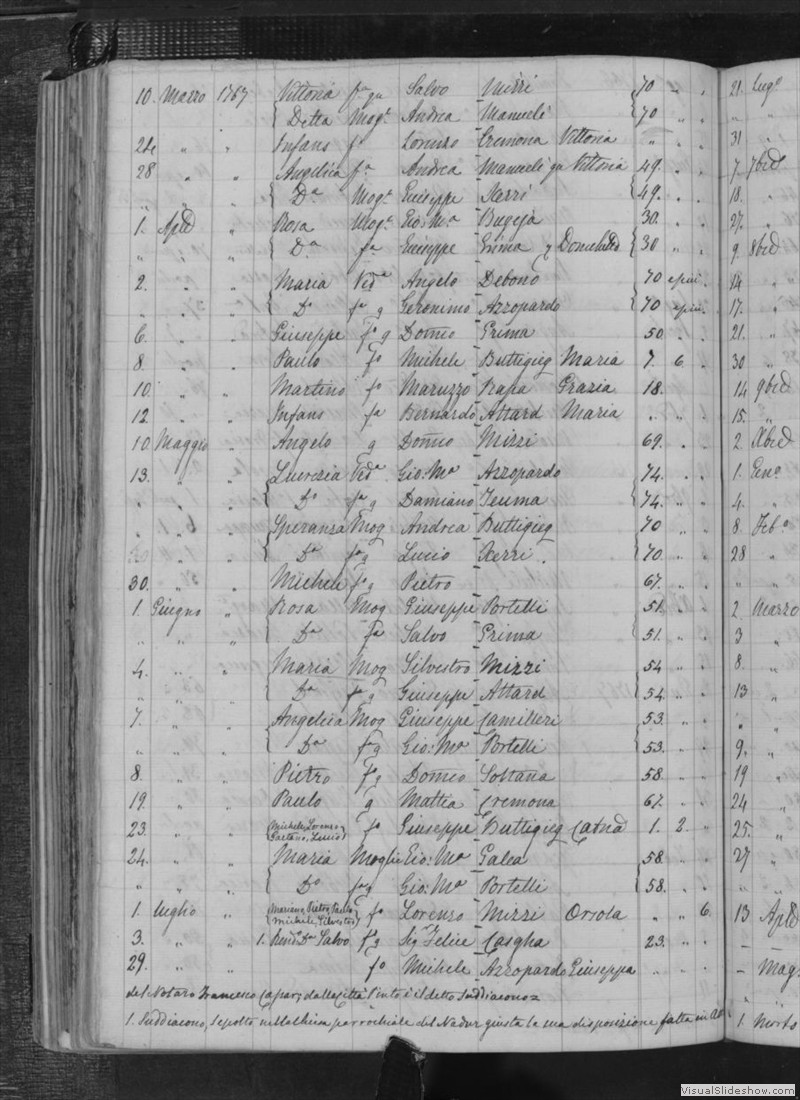 10. Marzo 1767 Vittoria fª qu Salvo Mizzi 70 " . 21. Lugº
Detta Mogᵉ Andrea Manuele 70 " .
24 " " Infans fª Lorenzo Cremona Vittoria " " . 31 "
28 " " Angelica fª Andrea Manuele qu Vittoria 49. . . 7. 7bre
" " " Dª Mogᵉ Giuseppe Xerri 49. . . 18.
1. Aplē " Rosa Mogᵉ Gio: Mª Bugeja 30. . . 27.
" " " Dª fª Giuseppe Grima 30 " . 9. 8bre
2. " " Maria Vedª Angelo Debono 70 14
" " " Dª fª q Geronimo Azzopardo 70 17.
6. " " Giuseppe fº q Domco Grima 50 . . 21.
8. " " Paulo fº Michele Buttigieg Maria 7. 6. 30
10. " " Martino fº Maruzzo Rapa Grazia 18. . 14 9bre
12. " " Infans fª Bernardo Attard Maria . . 15. "
10 Maggio " Angelo q Domco Mizzi 69. . 2. Xbre
13. " " Lucrezia Vedª Gio: Mª Azzopardo 74. . . 1. Genº
" " " Dª fª q Damiano Teuma 74. . . 4. "
. " " Speranza Mog Andrea Buttigieg 70 " . 8. Febº
" " Dª fª q Lucio Xerri . 70. . 28 "
30. " " Michele fº q Pietro 67. . . " "
1. Giugno " Rosa Mog Giuseppe Portelli 51. . . 2. Marzo
" " " Dª fª Salvo Grima 51. " . 3 "
4. " " Maria Mog Silvestro Mizzi 54 " . 8. "
" " " Dª fª q Giuseppe Attard 54. . . 13 "
7. " " Angelica Mog Giuseppe Camilleri 53. . . " "
" " " Dª fª q Gio: Mª Portelli 53. . . 9. "
8. " " Pietro fº q Domco Soltana 58. . . 19 "
19. " " Paulo q Mattia Cremona 67. . . 24 "
23. " " (Michele, Lorenzo, Gaetano, Lucio) fº Giuseppe Buttigieg Catnā 1. 2. " 25. "
24. " " Maria Moglie Gio: Mª Galea 58 " . 27 "
" " " Dª fª q Gio: Mª Portelli 58. . . " "
1. Luglio " (Mariano, Pietro, Paulo, Michele, Silvestro) fº Lorenzo Mizzi Orsola " " 6. 13 Aplē
3. " " 1. Rendº Dn Salvo fº q Sigr Felice Casgha 23. " . – "
29. " " fº Michele Azzopardo Giuseppa . . . – Mag.
del Notaro Francesco dalla Città è il detto Suddiacono
1. Suddiacono, Sepolto nella chiesa parrochiale del Nadur giusta la sua disposizione fatta in 1. Morto
VisualSlideshow.com